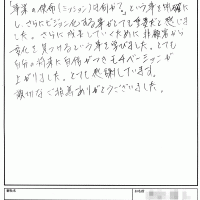 「事業の使命(ミッション)は何か?」という事を明確に
し、さらにビジョン化する事がとても重要だと感じま
した。さらに成長していくために非顧客から
変化を見つけるという事を学びました。とても
自分の将来に自信がつきモチベーションが
上がりました。とても感謝しています。
親切なご指導ありがとうございました。